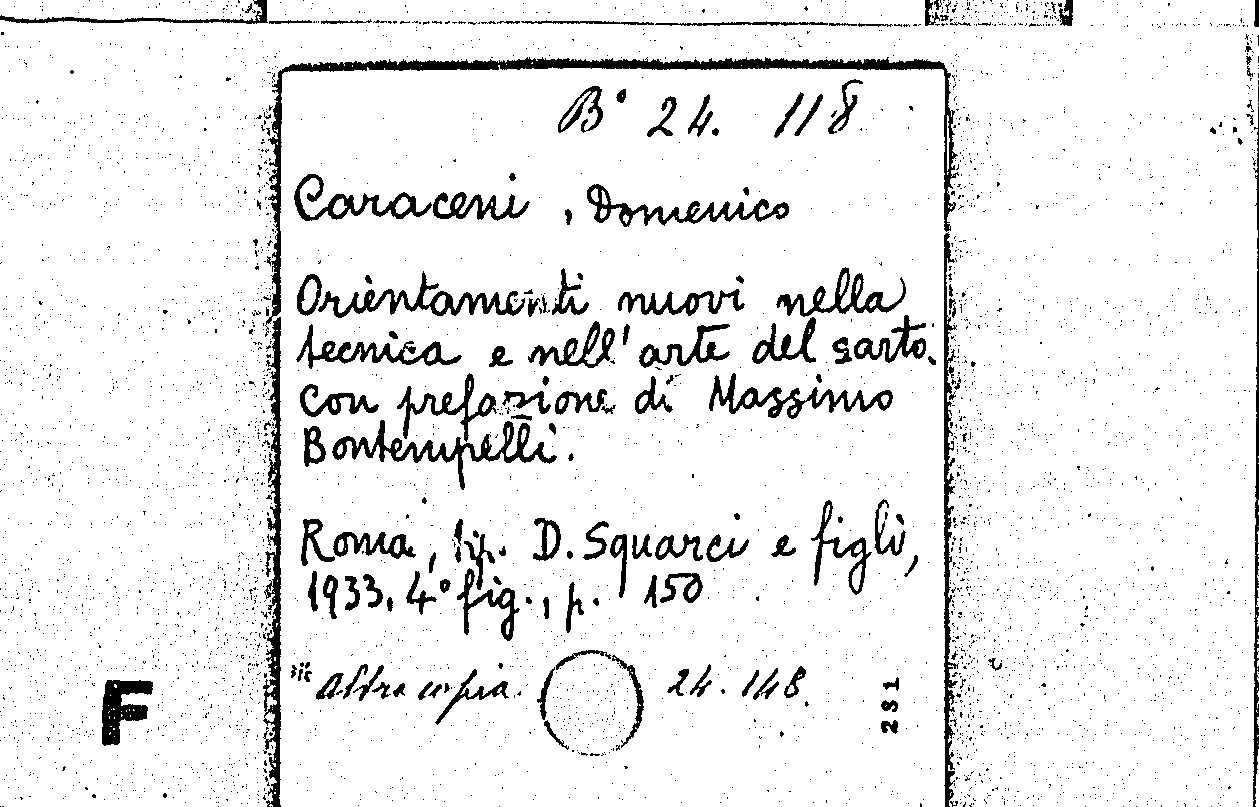 B° 24. 118
Caraceni, Domenico
Orientamenti nuovi nella
tecnica e nell'arte del sarto.
Con prefazione di Massimo
Bontempelli.
Roma, tip. D. Squarci e figli,
1933. 4° fig., p. 150
* Altra copia. 24. 148.
F
281